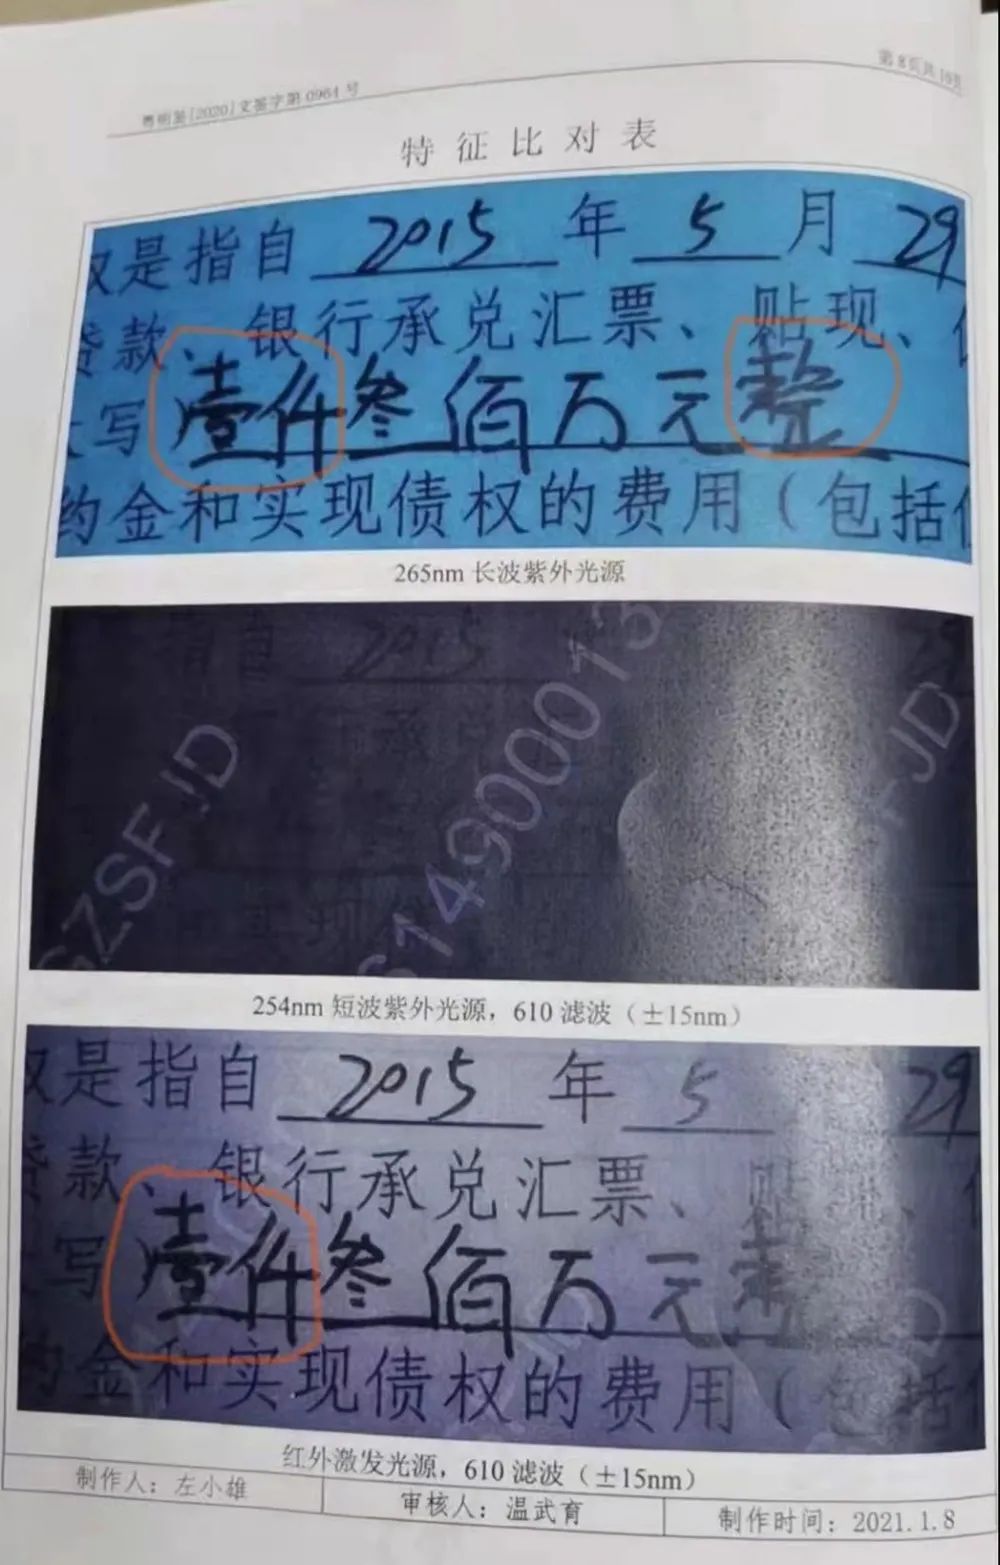 粤明鉴[2020]文鉴字第0964号
第8页共19页
特征比对表
是指自 2015 年 5 月 29
贷款、银行承兑汇票、贴现、
大写)壹仟叁佰万元整
约金和实现债权的费用(包括
265nm 长波紫外光源
指自 2015 29
承兑
实现债 的
GZSFJD
6149000013
FJD
254nm 短波紫外光源，610 滤波（±15nm）
是指自 2015 年 5 29
贷款、银行承兑汇票、贴现、
写)壹仟叁佰万元整
约金和实现债权的费用(包括
红外激发光源，610 滤波（±15nm）
制作人：左小雄
审核人：温武育
制作时间：2021.1.8